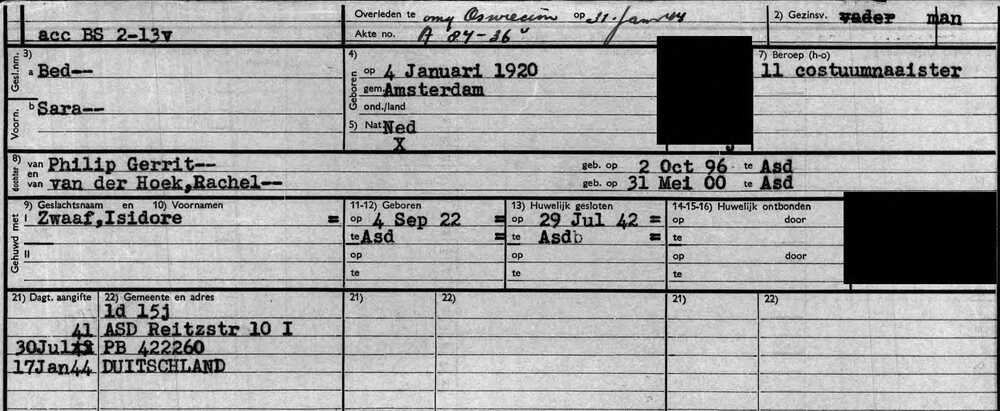 Overleden te omg Oswiecim op 31 Jan 44 2) Gezinsv. vader man
acc BS 2-13v Akte no. A 84-36
3) Gesl.nm. a Bed-- 4) Geboren op 4 Januari 1920 7) Beroep (h-o)
gem. Amsterdam 11 costuumnaaister
Voorn. b Sara-- ond./land
5) Nat. Ned
X
8) dochter van Philip Gerrit-- geb. op 2 Oct 96 te Asd
en
van van der Hoek,Rachel-- geb. op 31 Mei 00 te Asd
9) Geslachtsnaam en 10) Voornamen 11-12) Geboren 13) Huwelijk gesloten 14-15-16) Huwelijk ontbonden
Gehuwd met I Zwaaf,Isidore = op 4 Sep 22 = op 29 Jul 42 = op door
te Asd = te Asdb = te
II op op op door
te te te
21) Dagt. aangifte 22) Gemeente en adres 21) 22) 21) 22)
1d 15j
41 ASD Reitzstr 10 I
30Jul PB 422260
17Jan44 DUITSCHLAND